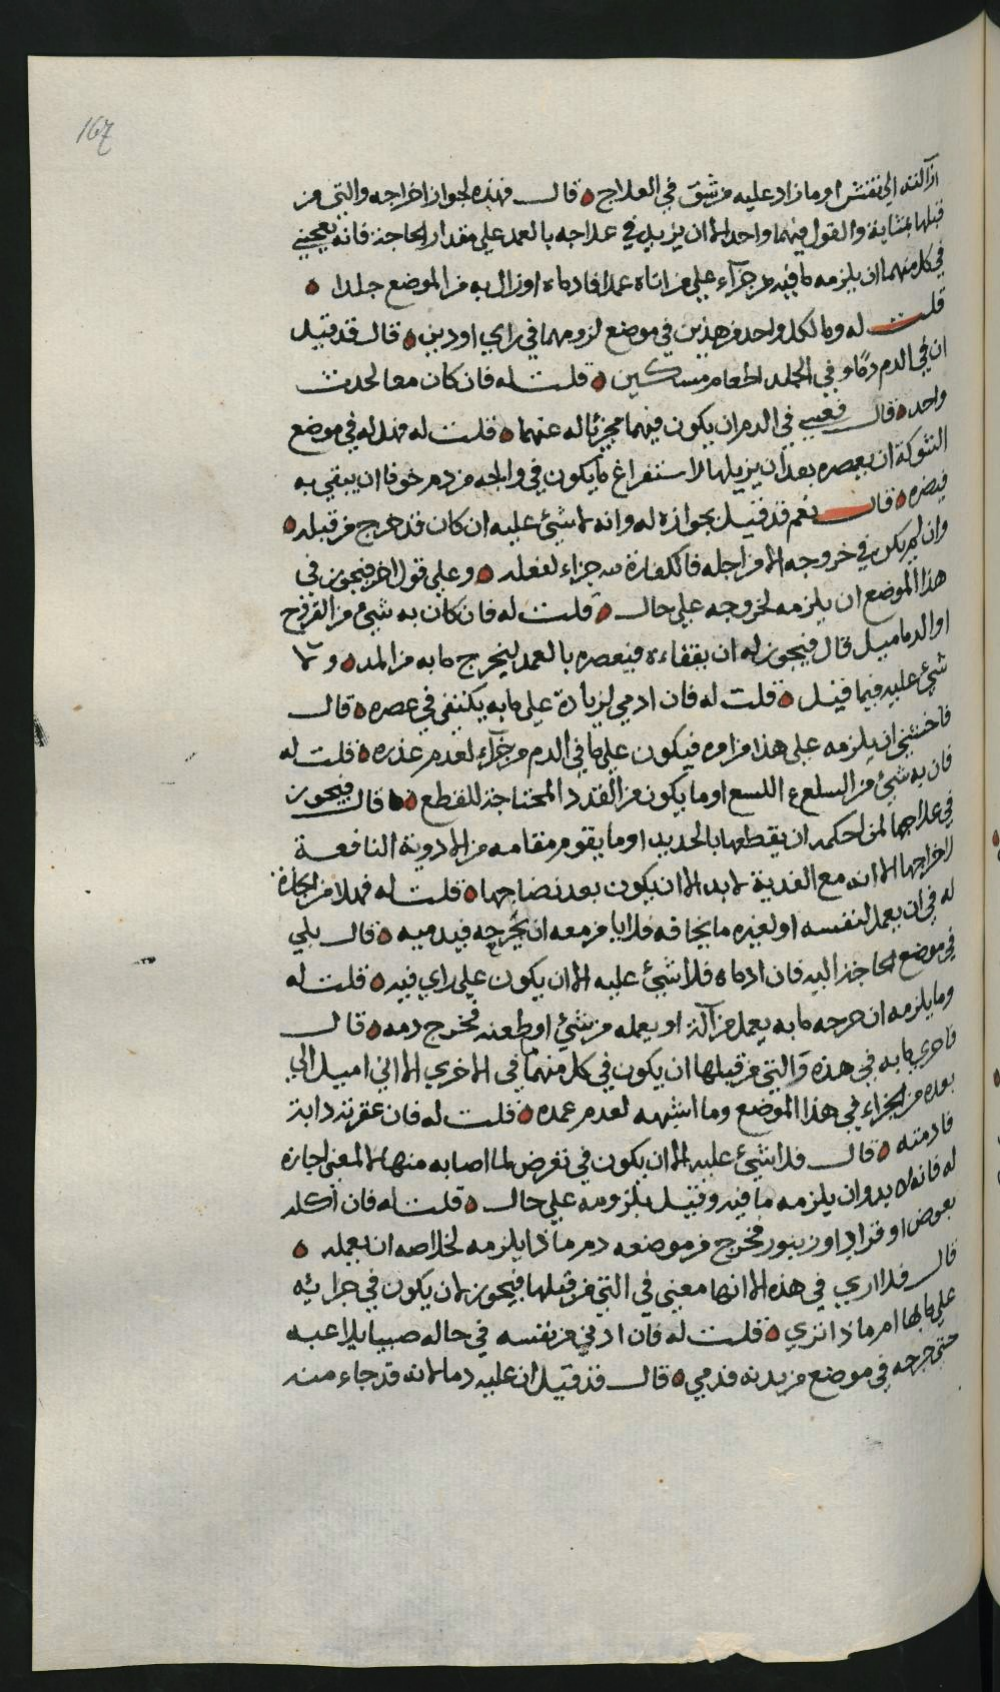 167
ازالته الى نقش او ما زاد عليه من شق في العلاج قال فهذه لجواز اخراجه والتي من
قبلها بمثابة والقول فيهما واحد الا ان يزيد في علاجه بالعمد على مقدار الحاجة فانه يعجبني
في كل منهما ان يلزمه ما فيه من جزآء على من اتاه عمدا فادماه او زال به من الموضع جلدا
قلت له وما لكل واحد من هذين في موضع لزومهما في راي او دين قال قد قيل
ان في الدم دمًا وفي الجلد اطعام مسكين قلت له فان كان معا لحدث
واحد قال فعسى في الدم ان يكون فيهما مجزئا له عنهما قلت له فهل له في موضع
الشوكة ان يعصره بعد ان يزيلها لاستفراغ ما يكون في والجه من دم خوفا ان يبقى به
فيضره قال نعم قد قيل بجوازه له وانه لا شيء عليه ان كان قد خرج من قبله
وان لم يكن في خروجه الا من اجله فالكفارة من جزاء لفعله وعلى قول اخر فيجوز في
هذا الموضع ان يلزمه لخروجه على حال قلت له فان كان به شيء من القروح
او الدماميل قال فيجوز له ان يفقاءه فيعصره بالعمد ليخرج ما به من المد ولا
شيء عليه فيما قيل قلت له فان ادمى لزيادة على ما به يكتفى في عصره قال
فاخشى ان يلزمه على هذا من امره فيكون على ما في الدم من جزآء لعدم عذره قلت له
فان به شيء من السلع اللسع او ما يكون من الغدد المحتاجة للقطع قال فيجوز
في علاجها لمن احكمه ان يقطعها بالحديد او ما يقوم مقامه من الادوية النافعة
لاخراجها الا انه مع الفدية لا بد الا ان يكون بعد نضاجها قلت له فهلا من اجازة
له في ان يعمل لنفسه او لغيره ما يخافه فلا يامن معه ان يجرحه فيدميه قال بلى
في موضع الحاجة اليه فان ادماه فلا شيء عليه الا ان يكون على راي فيه قلت له
وما يلزمه ان جرحه ما به يعمل من آلة او يعمله من شيء او طعنه فخرج دمه قال
فاحرى ما به في هذه والتي من قبلها ان يكون في كل منهما ما في الاخرى الا اني اميل الى
بعده من الجزاء في هذا الموضع وما اشبهه لعدم عمده قلت له فان عقرته دابة
فادمته قال فلا شيء عليه الا ان يكون في تعرض لما اصابه منها لا لمعنى اجازه
له فانه لا بد وان يلزمه ما فيه وقيل بلزومه على حال قلت له فان اكله
بعوض او قراد او زنبور فخرج من موضعه دم ماذا يلزمه لخلاصه ان يعمله
قال فلا ارى في هذه الا انها معنى في التي من قبلها فيجوز لان يكون في جزائه
على ما بها ام ماذا ترى قلت له فان ادنى من نفسه في حاله صبيا يلاعبه
حتى جرحه في موضع من بدنه فدمي قال قد قيل ان عليه دما لانه قد جاء منه